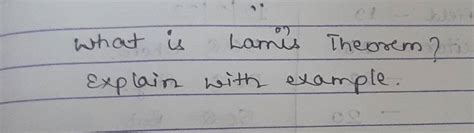 What is Lami's Theorem?
Explain with example.